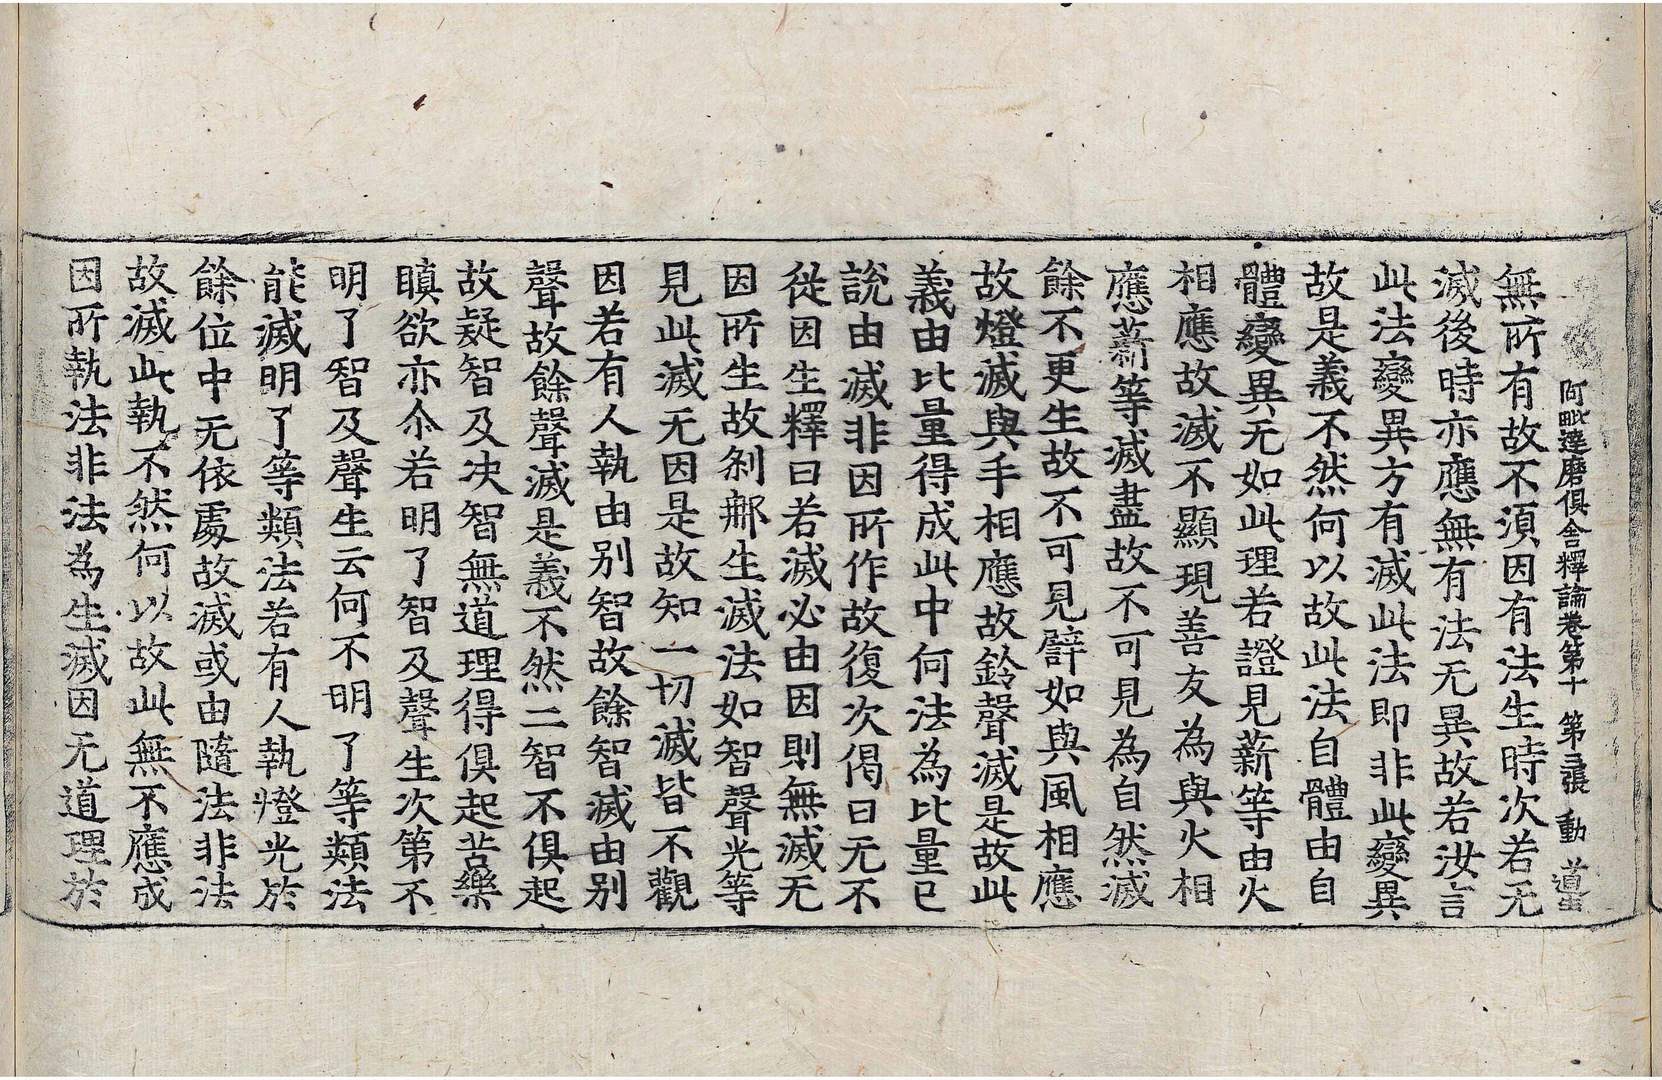 阿毗達磨俱舍釋論卷第十 第三張 動
無所有故不須因有法生時次若无
滅後時亦應無有法无異故若汝言
此法變異方有滅此法即非此變異
故是義不然何以故此法自體由自
體變異无如此理若證見薪等由火
相應故滅不顯現善友為與火相
應薪等滅盡故不可見為自然滅
餘不更生故不可見譬如與風相應
故燈滅與手相應故鈴聲滅是故此
義由比量得成此中何法為比量已
說由滅非因所作故復次偈曰无不
從因生釋曰若滅必由因則無滅无
因所生故剎那生滅法如智聲光等
見此滅无因是故知一切滅皆不觀
因若有人執由別智故餘智滅由別
聲故餘聲滅是義不然二智不俱起
故疑智及决智無道理得俱起苦樂
瞋欲亦尒若明了智及聲生次第不
明了智及聲生云何不明了等類法
能滅明了等類法若有人執燈光於
餘位中无依處故滅或由隨法非法
故滅此執不然何以故此無不應成
因所執法非法為生滅因无道理於